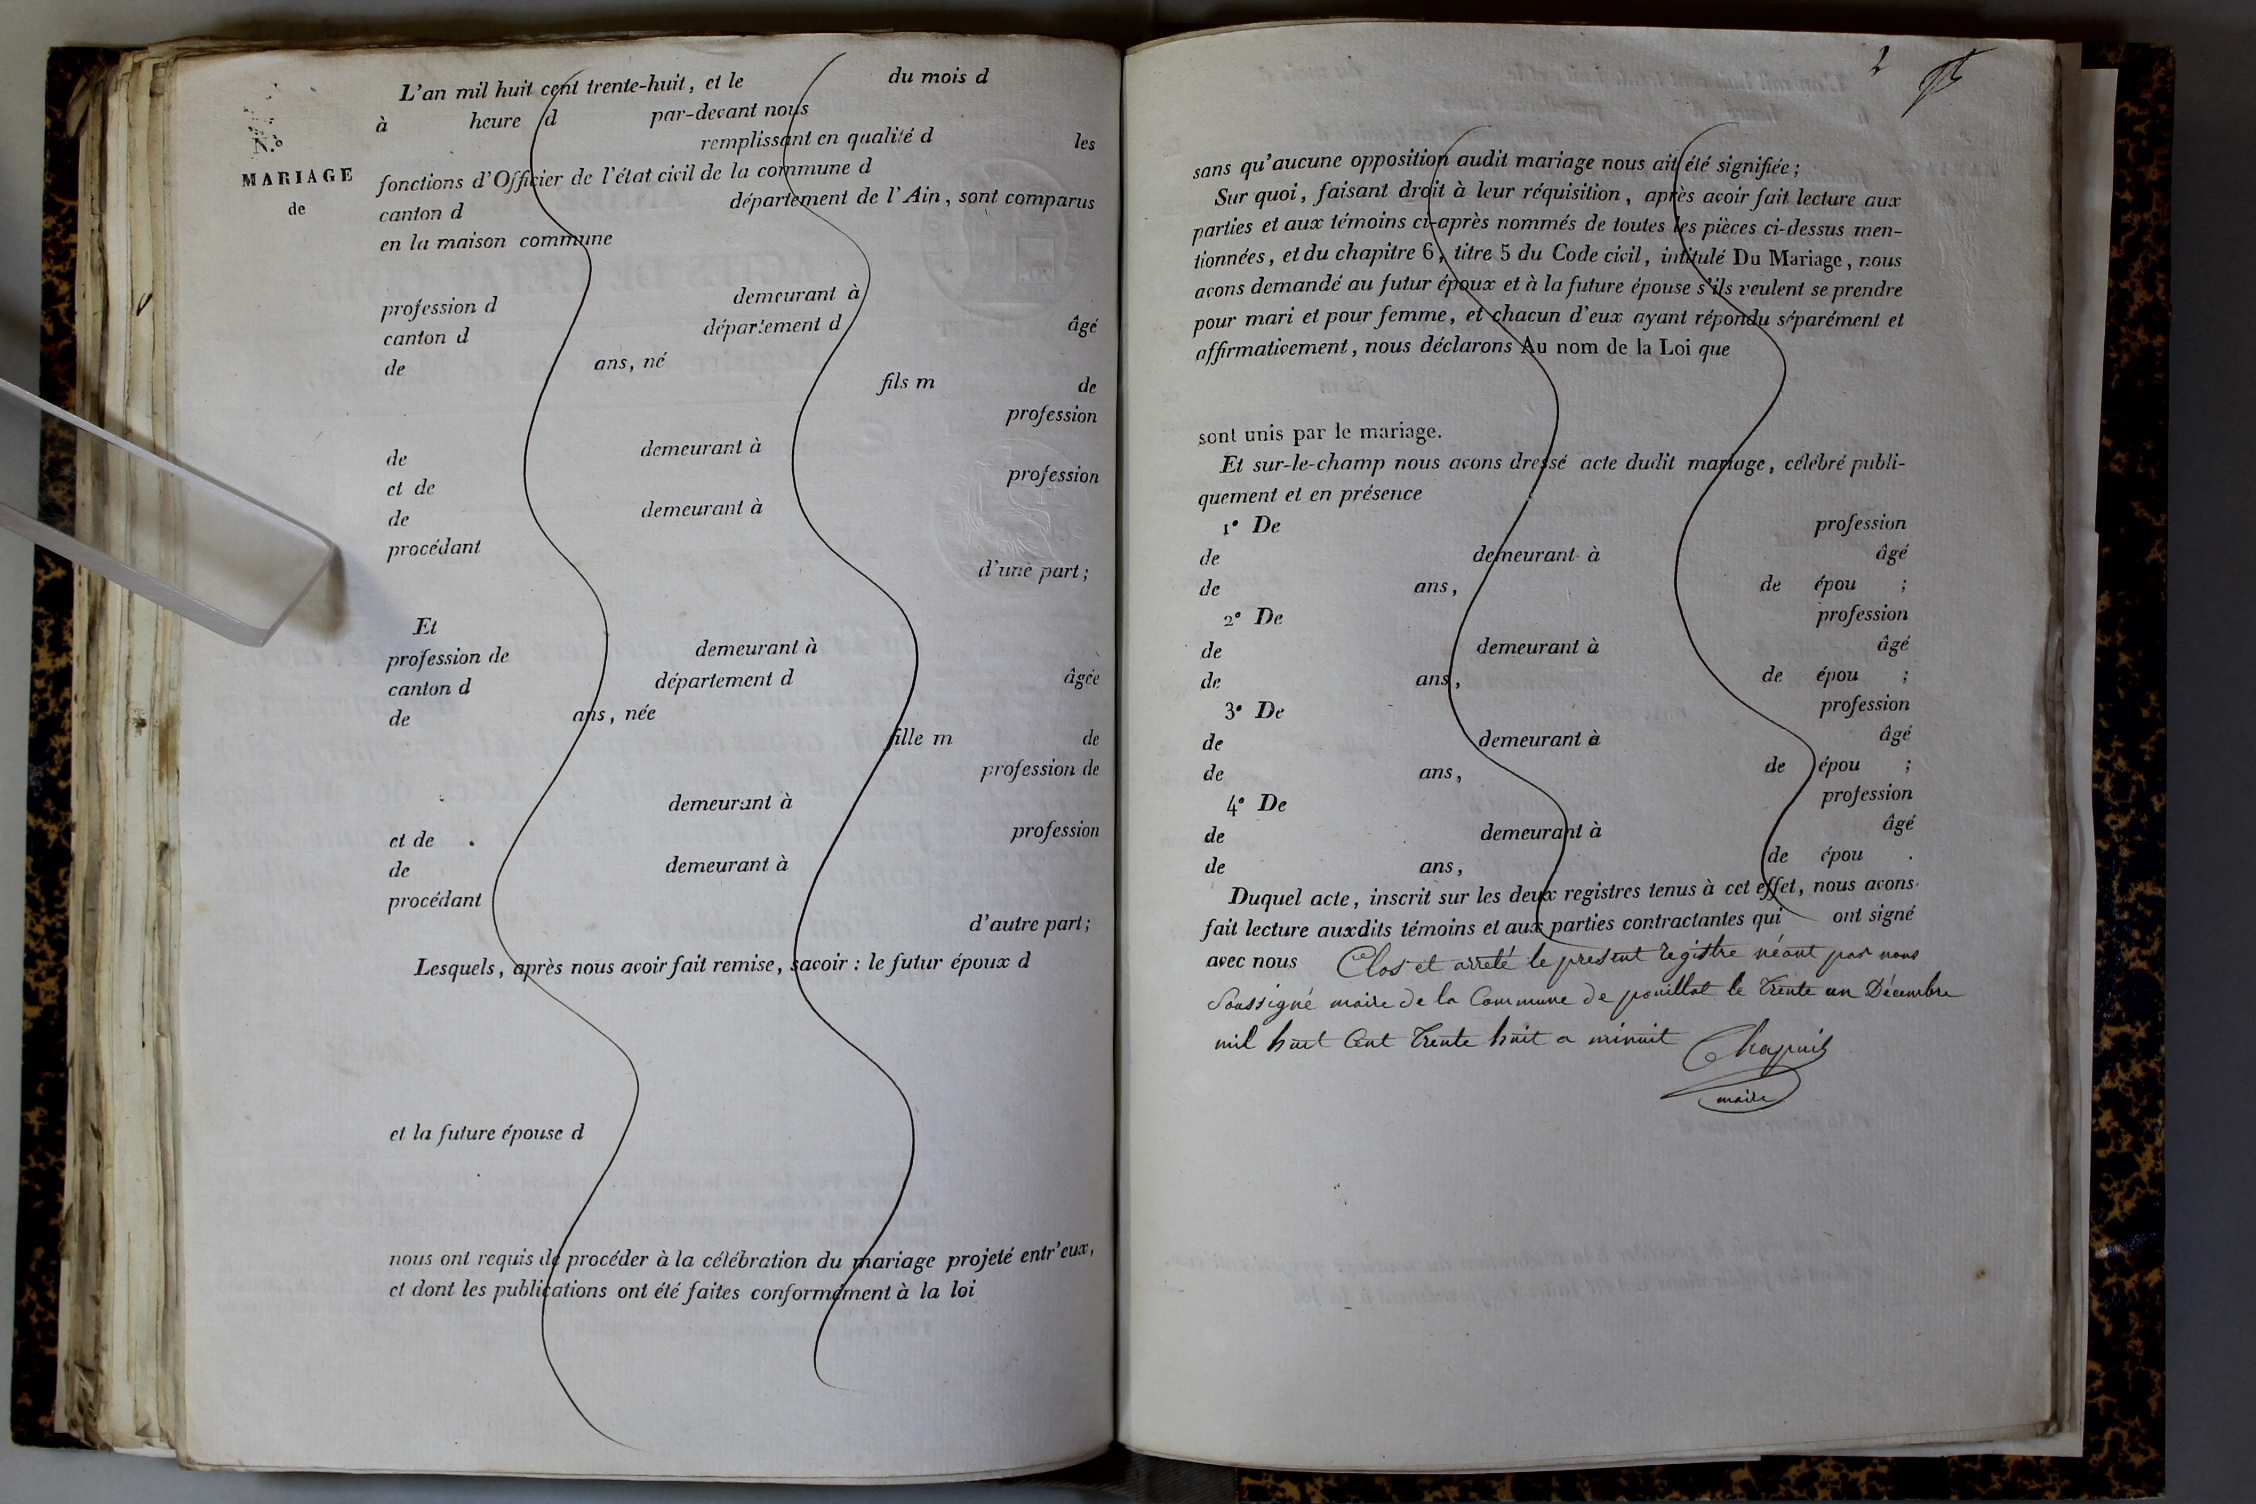 L'an mil huit cent trente-huit, et le du mois d
à heure d par-devant nous
remplissant en qualité d les
N.º
MARIAGE
de
fonctions d'Officier de l'état civil de la commune d
canton d département de l'Ain, sont comparus
en la maison commune
profession d demeurant à
canton d département d âgé
de ans, né
fils m de
profession
de demeurant à
et de profession
de demeurant à
procédant
d'une part;
Et
profession de demeurant à
canton d département d âgée
de ans, née
fille m de
profession de
demeurant à
et de profession
de demeurant à
procédant
d'autre part;
Lesquels, après nous avoir fait remise, savoir : le futur époux d
et la future épouse d
nous ont requis de procéder à la célébration du mariage projeté entr'eux,
et dont les publications ont été faites conformément à la loi
2
sans qu'aucune opposition audit mariage nous ait été signifiée;
Sur quoi, faisant droit à leur réquisition, après avoir fait lecture aux
parties et aux témoins ci-après nommés de toutes les pièces ci-dessus men-
tionnées, et du chapitre 6, titre 5 du Code civil, intitulé Du Mariage, nous
avons demandé au futur époux et à la future épouse s'ils veulent se prendre
pour mari et pour femme, et chacun d'eux ayant répondu séparément et
affirmativement, nous déclarons Au nom de la Loi que
sont unis par le mariage.
Et sur-le-champ nous avons dressé acte dudit mariage, célébré publi-
quement et en présence
1º De profession
de demeurant à âgé
de ans, de épou ;
2º De profession
de demeurant à âgé
de ans, de épou ;
3º De profession
de demeurant à âgé
de ans, de épou ;
4º De profession
de demeurant à âgé
de ans, de épou .
Duquel acte, inscrit sur les deux registres tenus à cet effet, nous avons
fait lecture auxdits témoins et aux parties contractantes qui ont signé
avec nous Clos et arreté le present registre néant par nous
Soussigné maire de la Commune de pouillat le trente un Décembre
mil huit Cent trente huit a minuit Chapuis
maire